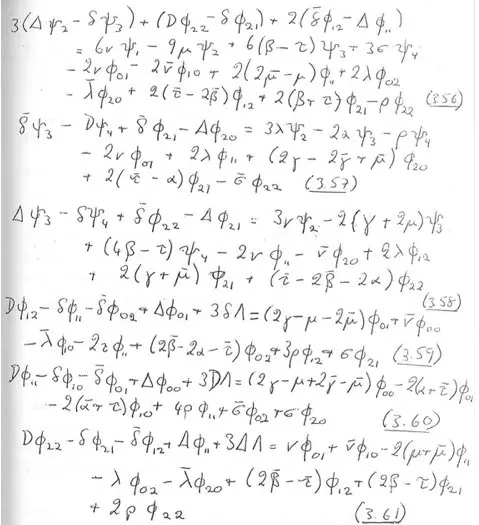 3(Δψ₂ − δψ₃) + (Dφ₂₂ − δφ₂₁) + 2(δ̄φ₁₂ − Δφ₁₁)
= 6νψ₁ − 9μψ₂ + 6(β − τ)ψ₃ + 3σψ₄
− 2νφ₀₁ − 2ν̄φ₁₀ + 2(2μ̄ − μ)φ₁₁ + 2λφ₀₂
− λ̄φ₂₀ + 2(τ̄ − 2β̄)φ₁₂ + 2(β + τ)φ₂₁ − ρφ₂₂ (3.56)
δ̄ψ₃ − Dψ₄ + δ̄φ₂₁ − Δφ₂₀ = 3λψ₂ − 2αψ₃ − ρψ₄
− 2νφ₀₁ + 2λφ₁₁ + (2γ − 2γ̄ + μ̄)φ₂₀
+ 2(τ̄ − α)φ₂₁ − σ̄φ₂₂ (3.57)
Δψ₃ − δψ₄ + δ̄φ₂₂ − Δφ₂₁ = 3νψ₂ − 2(γ + 2μ)ψ₃
+ (4β − τ)ψ₄ − 2νφ₁₁ − ν̄φ₂₀ + 2λφ₁₂
+ 2(γ + μ̄)φ₂₁ + (τ̄ − 2β̄ − 2α)φ₂₂
(3.58)
Dφ₁₂ − δφ₁₁ − δ̄φ₀₂ + Δφ₀₁ + 3δΛ = (2γ − μ − 2μ̄)φ₀₁ + ν̄φ₀₀
− λ̄φ₁₀ − 2τφ₁₁ + (2β̄ − 2α − τ̄)φ₀₂ + 3ρφ₁₂ + σφ₂₁ (3.59)
Dφ₁₁ − δφ₁₀ − δ̄φ₀₁ + Δφ₀₀ + 3DΛ = (2γ − μ + 2γ̄ − μ̄)φ₀₀ − 2(α + τ̄)φ₀₁
− 2(ᾱ + τ)φ₁₀ + 4ρφ₁₁ + σ̄φ₀₂ + σφ₂₀ (3.60)
Dφ₂₂ − δφ₂₁ − δ̄φ₁₂ + Δφ₁₁ + 3ΔΛ = νφ₀₁ + ν̄φ₁₀ − 2(μ + μ̄)φ₁₁
− λφ₀₂ − λ̄φ₂₀ + (2β̄ − τ̄)φ₁₂ + (2β − τ)φ₂₁
+ 2ρφ₂₂ (3.61)